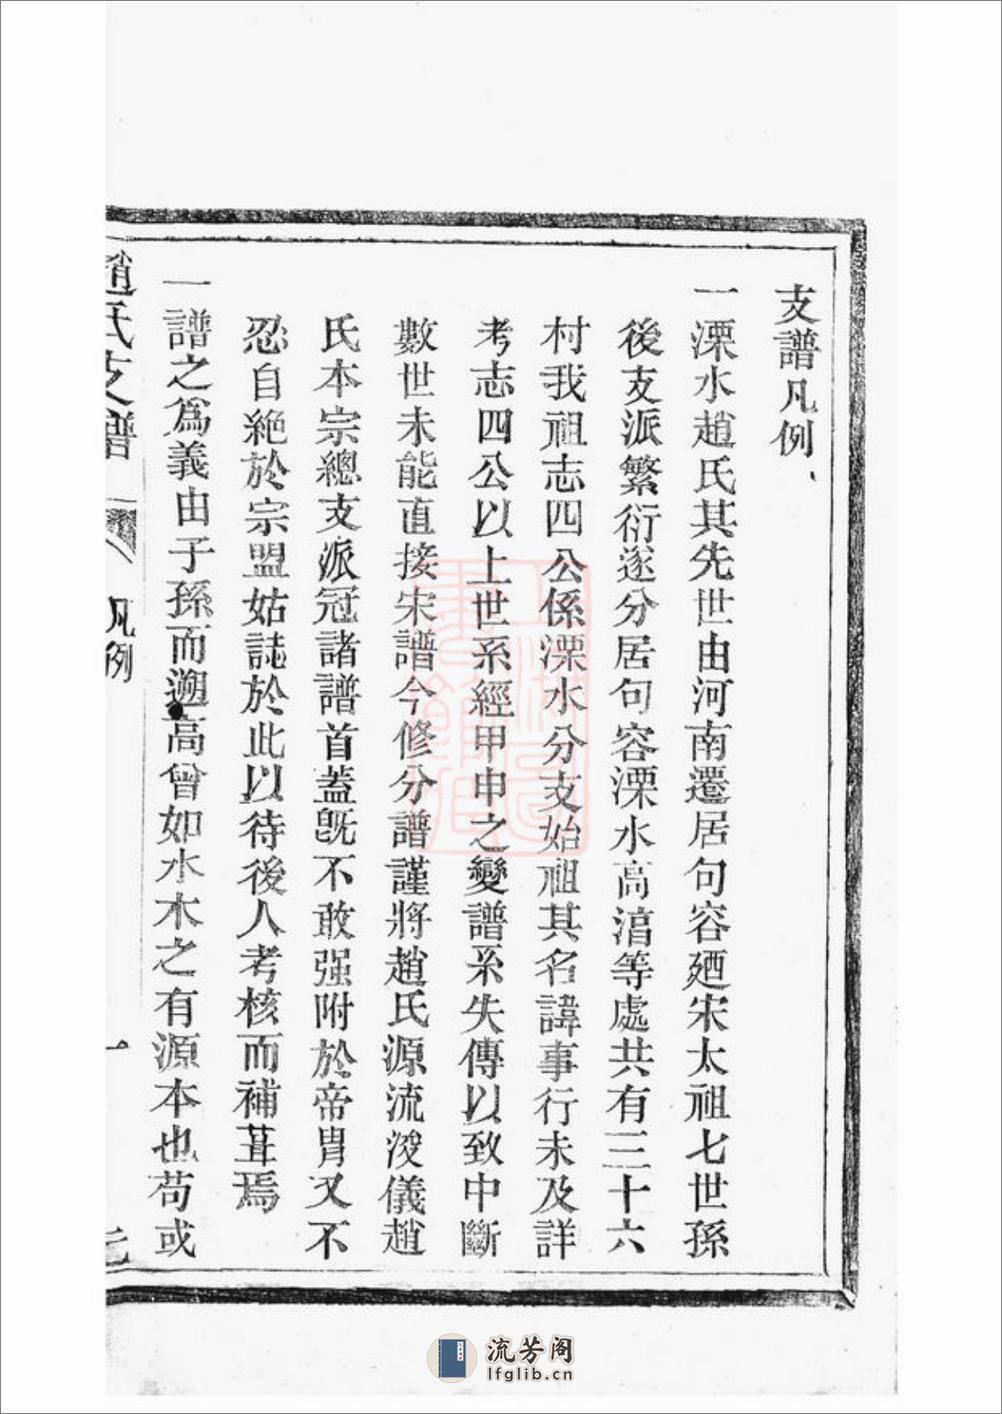 支譜凡例
一溧水趙氏其先世由河南遷居句容廼宋太祖七世孫
後支派繁衍遂分居句容溧水高淯等處共有三十六
村我祖志四公係溧水分支始祖其名諱事行未及詳
考志四公以上世系經甲申之變譜系失傳以致中斷
數世未能直接宋譜今修分譜謹將趙氏源流浚儀趙
氏本宗總支派冠諸譜首蓋旣不敢强附於帝胄又不
忍自絶於宗盟姑誌於此以待後人考核而補葺焉
一譜之爲義由子孫而遡高曾如水木之有源本也苟或
趙氏支譜
凡例
一
流芳阁
lfglib.cn